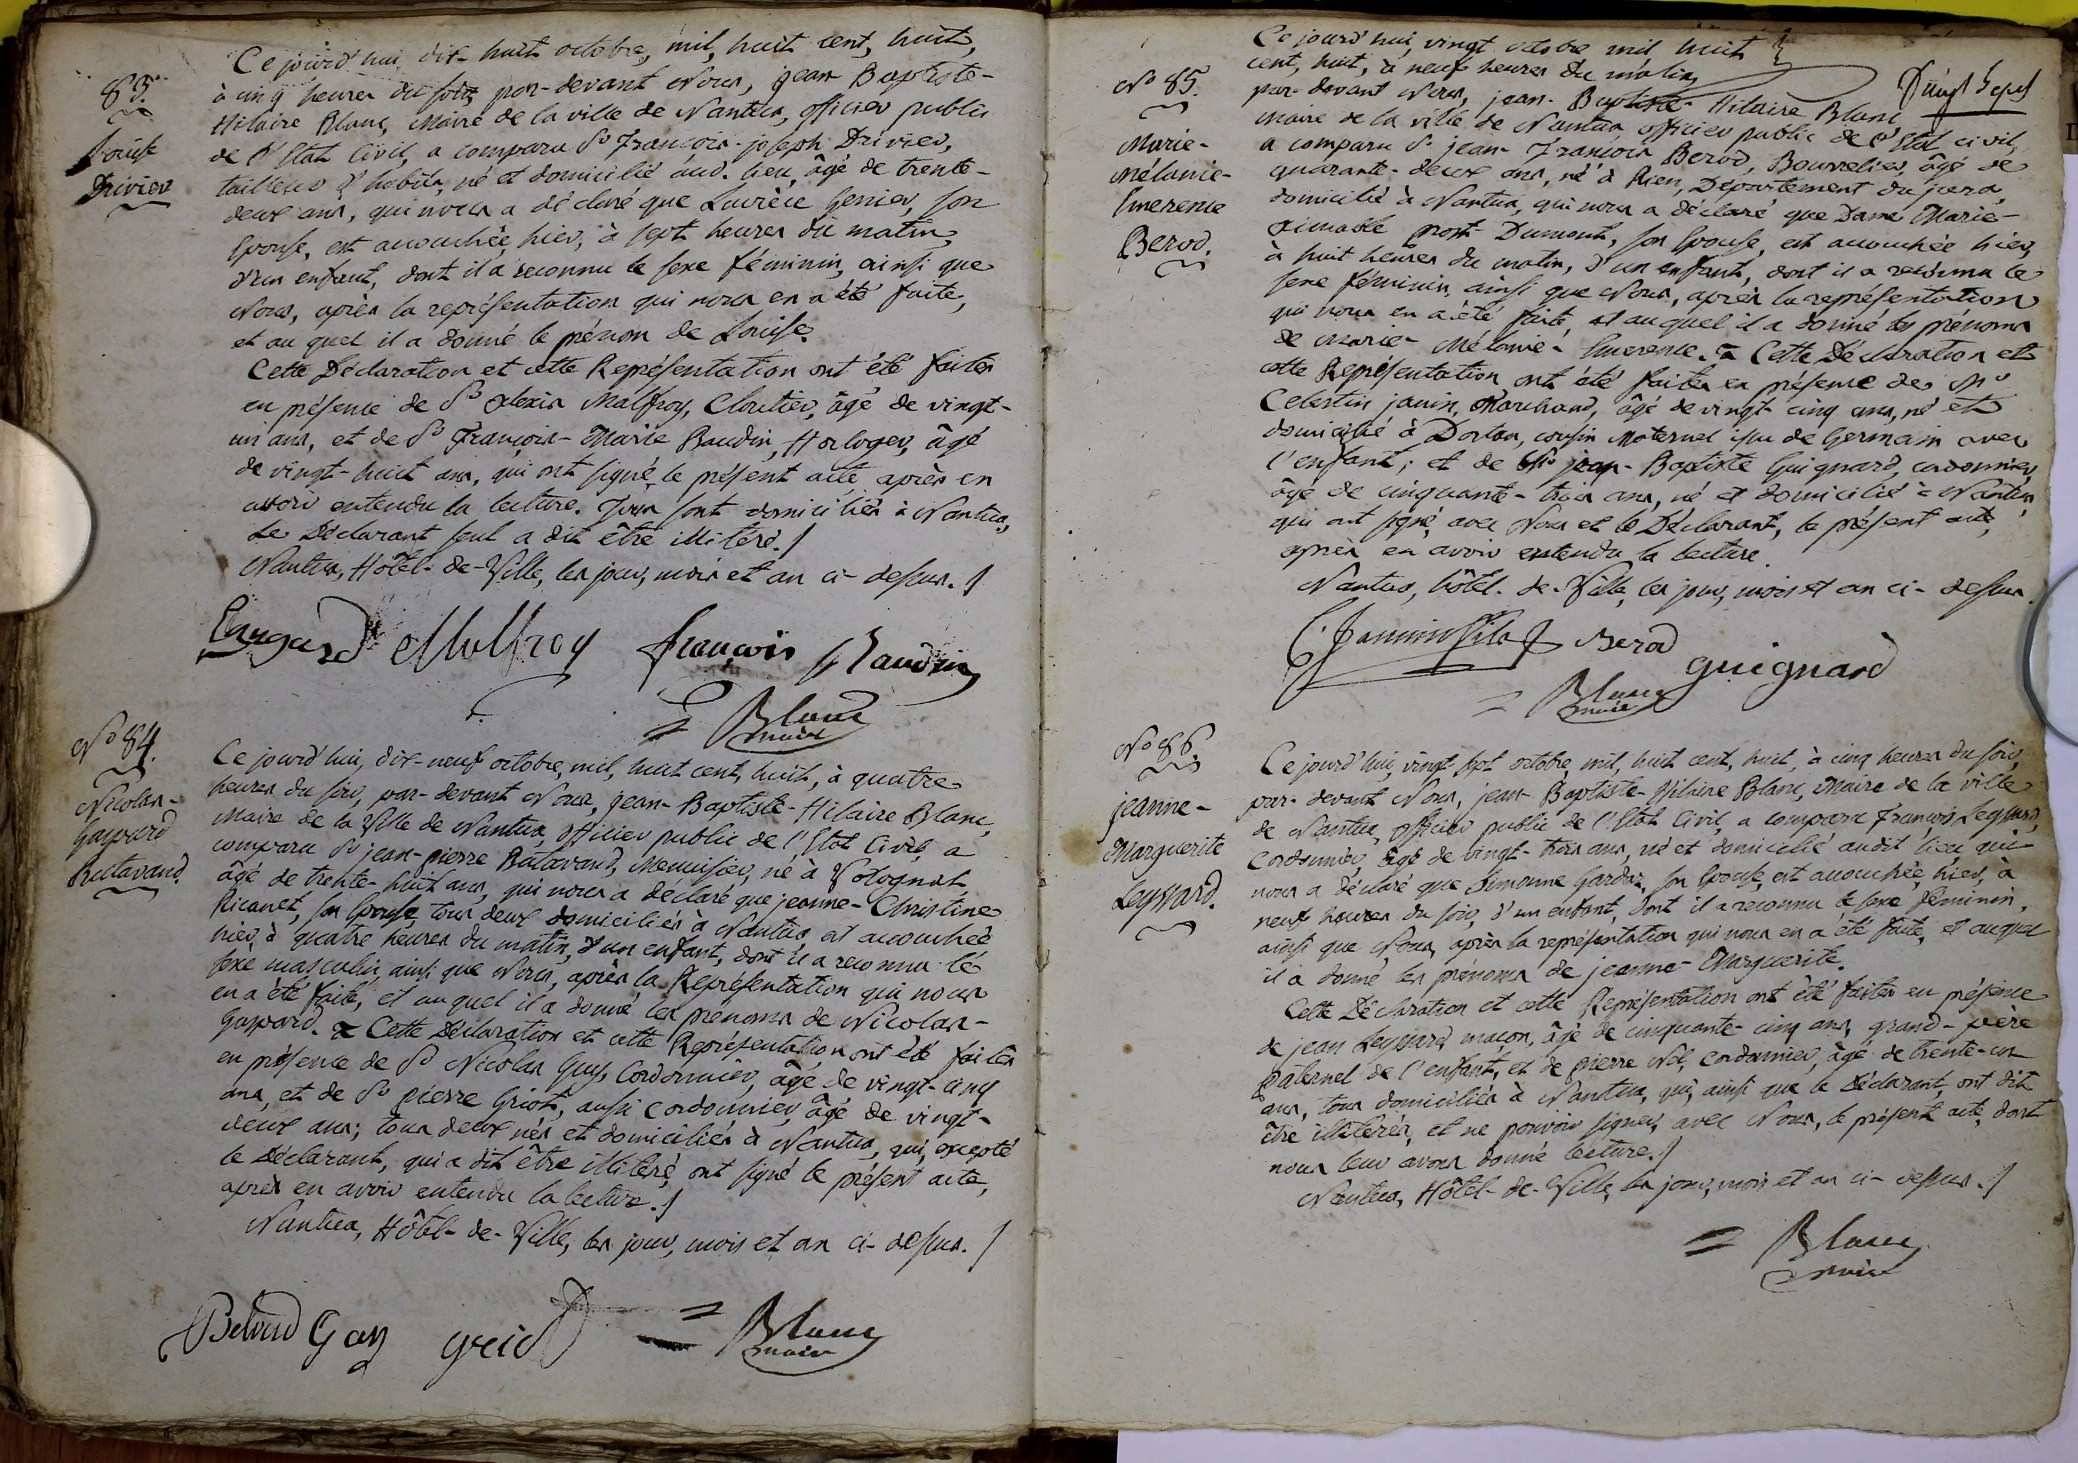 83.
Louise
Drivier
Ce jourd'hui, dix-huit octobre, mil, huit cent, huit,
à cinq heures du soir, par-devant Nous, jean Baptiste-
Hilaire Blanc, Maire de la ville de Nantua, officier public
de l'Etat Civil, a comparu Sr François-joseph Drivier,
tailleur d'habits, né et domicilié aud. lieu, âgé de trente-
deux ans, qui nous a déclaré que Genier, son
Epouse, est accouchée, hier, à sept heures du matin,
d'un enfant, dont il a reconnu le sexe féminin, ainsi que
Nous, après la représentation qui nous en a été faite,
et au quel il a donné le prénom de Louise.
Cette Déclaration et cette Représentation ont été faites
en présence de Sr Alexis Malfroy, Cloutier, âgé de vingt-
un ans, et de Sr François-Marie Baudin, Horloger, âgé
de vingt-huit ans, qui ont signé le présent acte après en
avoir entendu la lecture. Tous sont domiciliés à Nantua,
Le Déclarant seul a dit être illitéré./
Nantua, Hôtel-de-Ville, les jour, mois et an ci-dessus./
Malfroy françois Baudin
Blanc
maire
No 84.
Nicolas-
Gaspard
Ratavand.
Ce jourd'hui, dix-neuf octobre, mil, huit cent, huit, à quatre
heures du soir, par-devant Nous, jean-Baptiste-Hilaire Blanc,
Maire de la Ville de Nantua, officier public de l'Etat Civil, a
comparu Sr jean-pierre Ratavand, Menuisier, né à Volognat,
âgé de trente-huit ans, qui nous a déclaré que jeanne-Christine
Ricanet, son Epouse, tous deux domiciliés à Nantua, est accouchée
hier, à quatre heures du matin, d'un enfant, dont il a reconnu le
sexe masculin, ainsi que Nous, après la Représentation qui nous
en a été faite, et au quel il a donné les prénoms de Nicolas-
Gaspard. Cette Déclaration et cette Représentation ont été faites
en présence de Sr Nicolas Guy, Cordonnier, âgé de vingt-cinq
ans, et de Sr pierre Griot, aussi cordonnier, âgé de vingt-
deux ans; tous deux nés et domiciliés à Nantua, qui, excepté
le Déclarant, qui a dit être illitéré, ont signé le présent acte,
après en avoir entendu la lecture./
Nantua, Hôtel-de-Ville, les jour, mois et an ci-dessus./
Blanc
maire
No 85.
Marie-
Mélanie-
Emerence
Berod.
Ce jourd'hui, vingt octobre mil huit
cent, huit, à neuf heures du matin,
par-devant Nous, jean-Baptiste-Hilaire Blanc
maire de la ville de Nantua, officier public de l'Etat civil,
a comparu Sr jean-François Berod, Bourrelier, âgé de
quarante-deux ans, né à Rien, Département du jura,
domicilié à Nantua, qui nous a déclaré que Dame Marie-
aimable Dumont, son Epouse, est accouchée hier,
à huit heures du matin, d'un enfant, dont il a reconnu le
sexe féminin, ainsi que Nous, après la représentation
qui nous en a été faite, et auquel il a donné les prénoms
de Marie-Mélanie-Emerence. Cette Déclaration et
cette Représentation ont été faites en présence de Mr
Celestin janin, Marchand, âgé de vingt-cinq ans, né et
domicilié à Dortan, cousin Maternel issu de Germain avec
l'enfant; et de jean-Baptiste Guignard, cordonnier,
âgé de cinquante-trois ans, né et domicilié à Nantua,
qui ont signé, avec Nous et le Déclarant, le présent acte,
après en avoir entendu la lecture.
Nantua, hôtel-de-Ville, les jour, mois et an ci-dessus.
Berod
guignard
Blanc
maire
No 86.
jeanne-
Marguerite
Leyssard.
Ce jourd'hui, vingt sept octobre, mil, huit cent, huit, à cinq heures du soir,
par-devant Nous, jean-Baptiste-Hilaire Blanc, Maire de la ville
de Nantua, officier public de l'Etat Civil, a comparu François Leyssard,
Cordonnier, âgé de vingt-trois ans, né et domicilié audit lieu qui
nous a déclaré que Simonne Gardaz, son Epouse, est accouchée, hier, à
neuf heures du soir, d'un enfant, dont il a reconnu le sexe féminin,
ainsi que Nous, après la représentation qui nous en a été faite, et auquel
il a donné les prénoms de jeanne-Marguerite.
Cette Déclaration et cette Représentation ont été faites en présence
de jean Leyssard, maçon, âgé de cinquante-cinq ans, grand-père
paternel de l'enfant, et de pierre cordonnier, âgé de trente-un
ans, tous domiciliés à Nantua, qui, ainsi que le Déclarant, ont dit
être illitérés, et ne pouvoir signer, avec Nous, le présent acte, dont
nous leur avons donné lecture./
Nantua, Hôtel-de-Ville, les jour, mois et an ci-dessus./
Blanc
maire